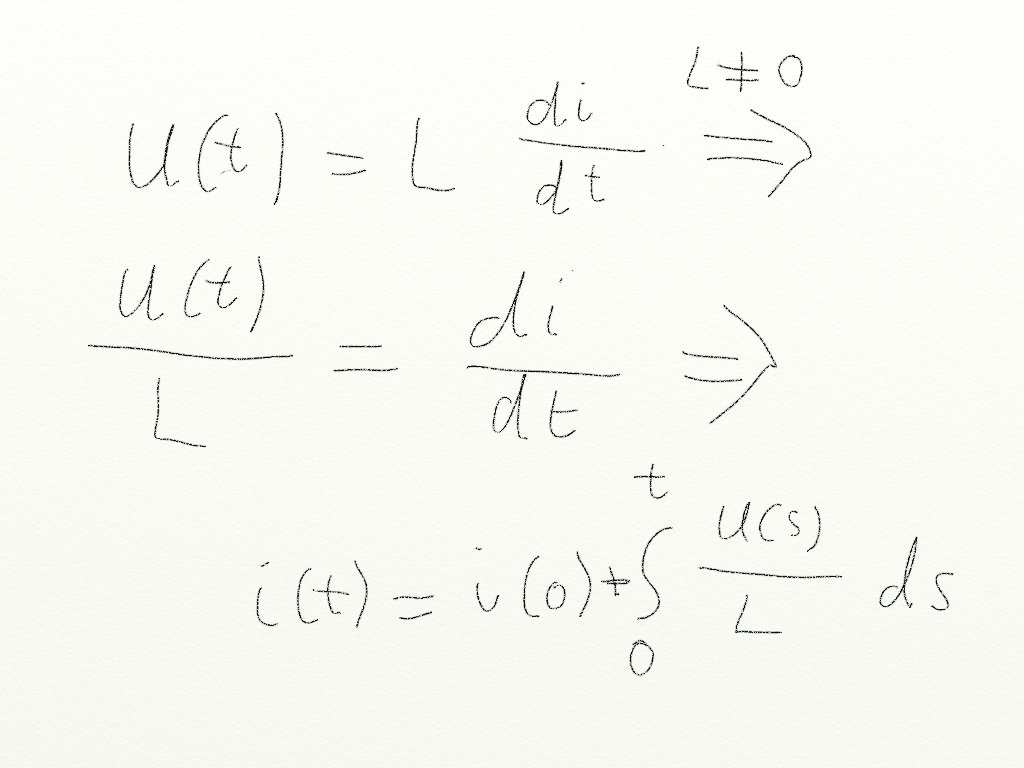 u(t) = L di/dt L≠0 ⇒
u(t)/L = di/dt ⇒
i(t) = i(0) + ∫₀ᵗ u(s)/L ds